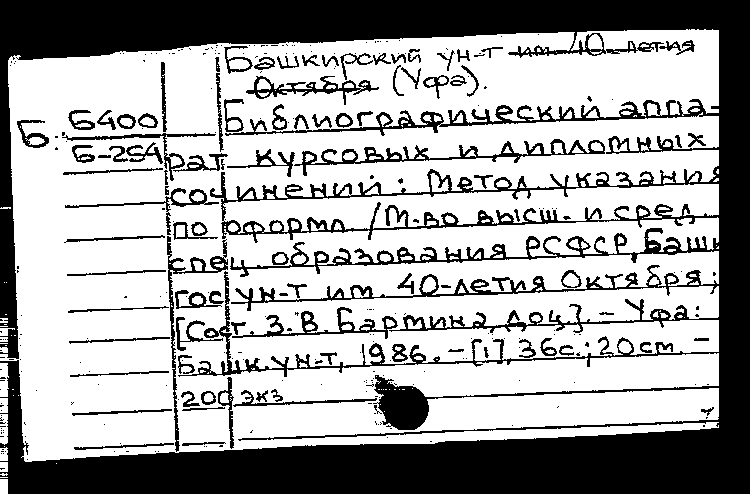 Башкирский ун-т им. 40-летия
Октября (Уфа).
Б. Б400
Б-254
Библиографический аппа-
рат курсовых и дипломных
сочинений: Метод. указания
по оформл. / М-во высш. и сред.
спец. образования РСФСР, Башк.
гос. ун-т им. 40-летия Октября;
[Сост. З. В. Бартина, доц.]. – Уфа:
Башк. ун-т, 1986. – [1], 36с.; 20см. –
200 экз